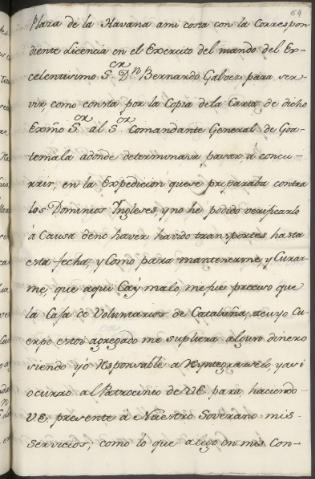 64
Plaza de la Havana ami costa con la Correspon
diente Licencia en el Exercito del mando del Ex-
celentisimo S.or D.n Bernardo Galves, para ser
vir como consta por la Copia de la Carta de dicho
Exmo S.or al S.or Comandante General de Goa-
temala adonde determinava pasar á concu-
rrir, en la Expedicion que se preparaba contra
los Dominios Ingleses, y no he podido verificarlo
á Causa deno haver havido transportes hasta
esta fecha, y Como para mantenerme, y Curar
me, que aqui Cay malo, me fue preciso que
la Casa de Voluntarios de Cataluña, acuyo Cu
erpo estoi agregado me supliera algun dinero
siendo yo Responsable a Reyntegrarselo, y asi
ocurro al Patrocinio de V.E. para haciendo
V.E. presente á Nuestro Soverano mis
servicios, como lo que alego en mis Con-